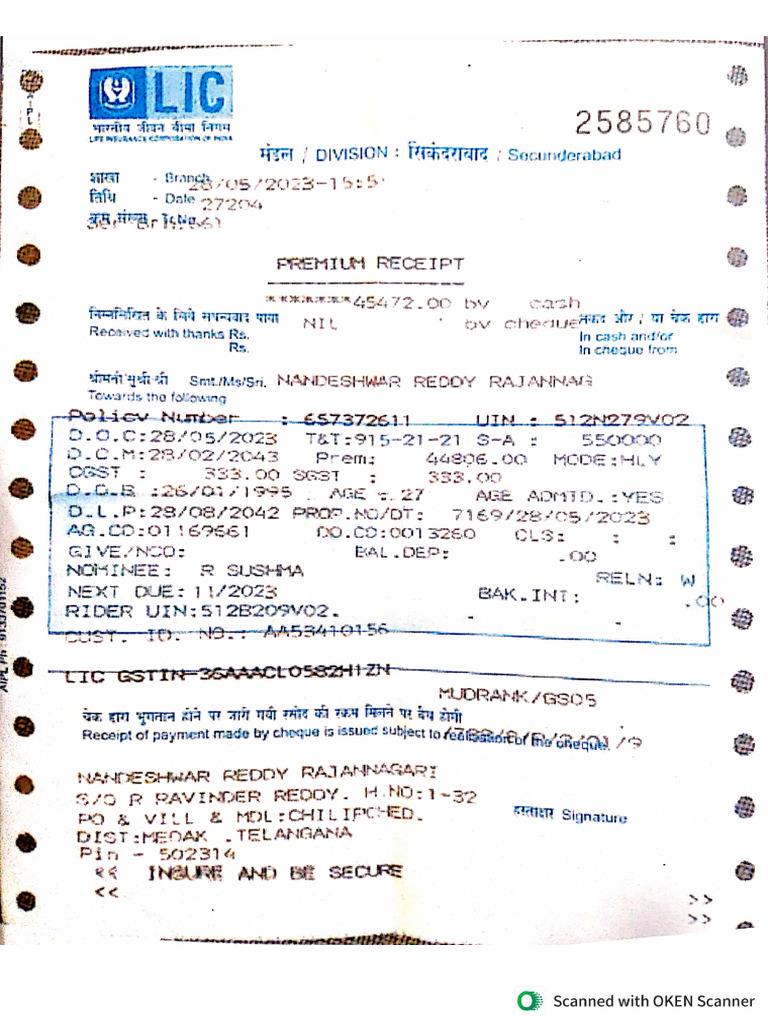 LIC
भारतीय जीवन बीमा निगम
LIFE INSURANCE CORPORATION OF INDIA
2585760
मंडल / DIVISION : सिकंदराबाद / Secunderabad
शाखा - Branch
28/05/2023-15:5
तिथि - Date 27204
क्रम संख्या - Tr.No.
PREMIUM RECEIPT
*******45472.00 by cash
निम्नलिखित के लिये सधन्यवाद पाया NIL by cheque नकद और / या चेक द्वारा
Received with thanks Rs. In cash and/or
Rs. In cheque from
श्रीमती/सुश्री/श्री Smt./Ms/Sri. NANDESHWAR REDDY RAJANNAG
Towards the following
Policy Number : 657372611 UIN : 512N279V02
D.O.C:28/05/2023 T&T:915-21-21 S-A : 550000
D.O.M:28/02/2043 Prem: 44806.00 MODE:HLY
CGST : 333.00 SGST : 333.00
D.O.B :26/01/1995 . AGE : 27 AGE ADMTD.:YES
D.L.P:28/08/2042 PROP.NO/DT: 7169/28/05/2023
AG.CD:01169661 DO.CD:0013260 CLS: : :
GIVE/NCO: BAL.DEP: .00
NOMINEE: R SUSHMA RELN: W
NEXT DUE: 11/2023 BAK.INT: .00
RIDER UIN:512B209V02.
CUST. ID. NO.: AA53410156
LIC GSTIN-36AAACL0582H1ZN
MUDRANK/GS05
चेक द्वारा भुगतान होने पर जारी गयी रसीद की रकम मिलने पर वैध होगी
Receipt of payment made by cheque is issued subject to realisation of the cheque.
NANDESHWAR REDDY RAJANNAGARI
S/O R RAVINDER REDDY. H.NO:1-32
PO & VILL & MDL:CHILIPCHED. हस्ताक्षर Signature
DIST:MEDAK .TELANGANA
Pin - 502314
<< INSURE AND BE SECURE
<<
>>
>>
AIPL
Scanned with OKEN Scanner